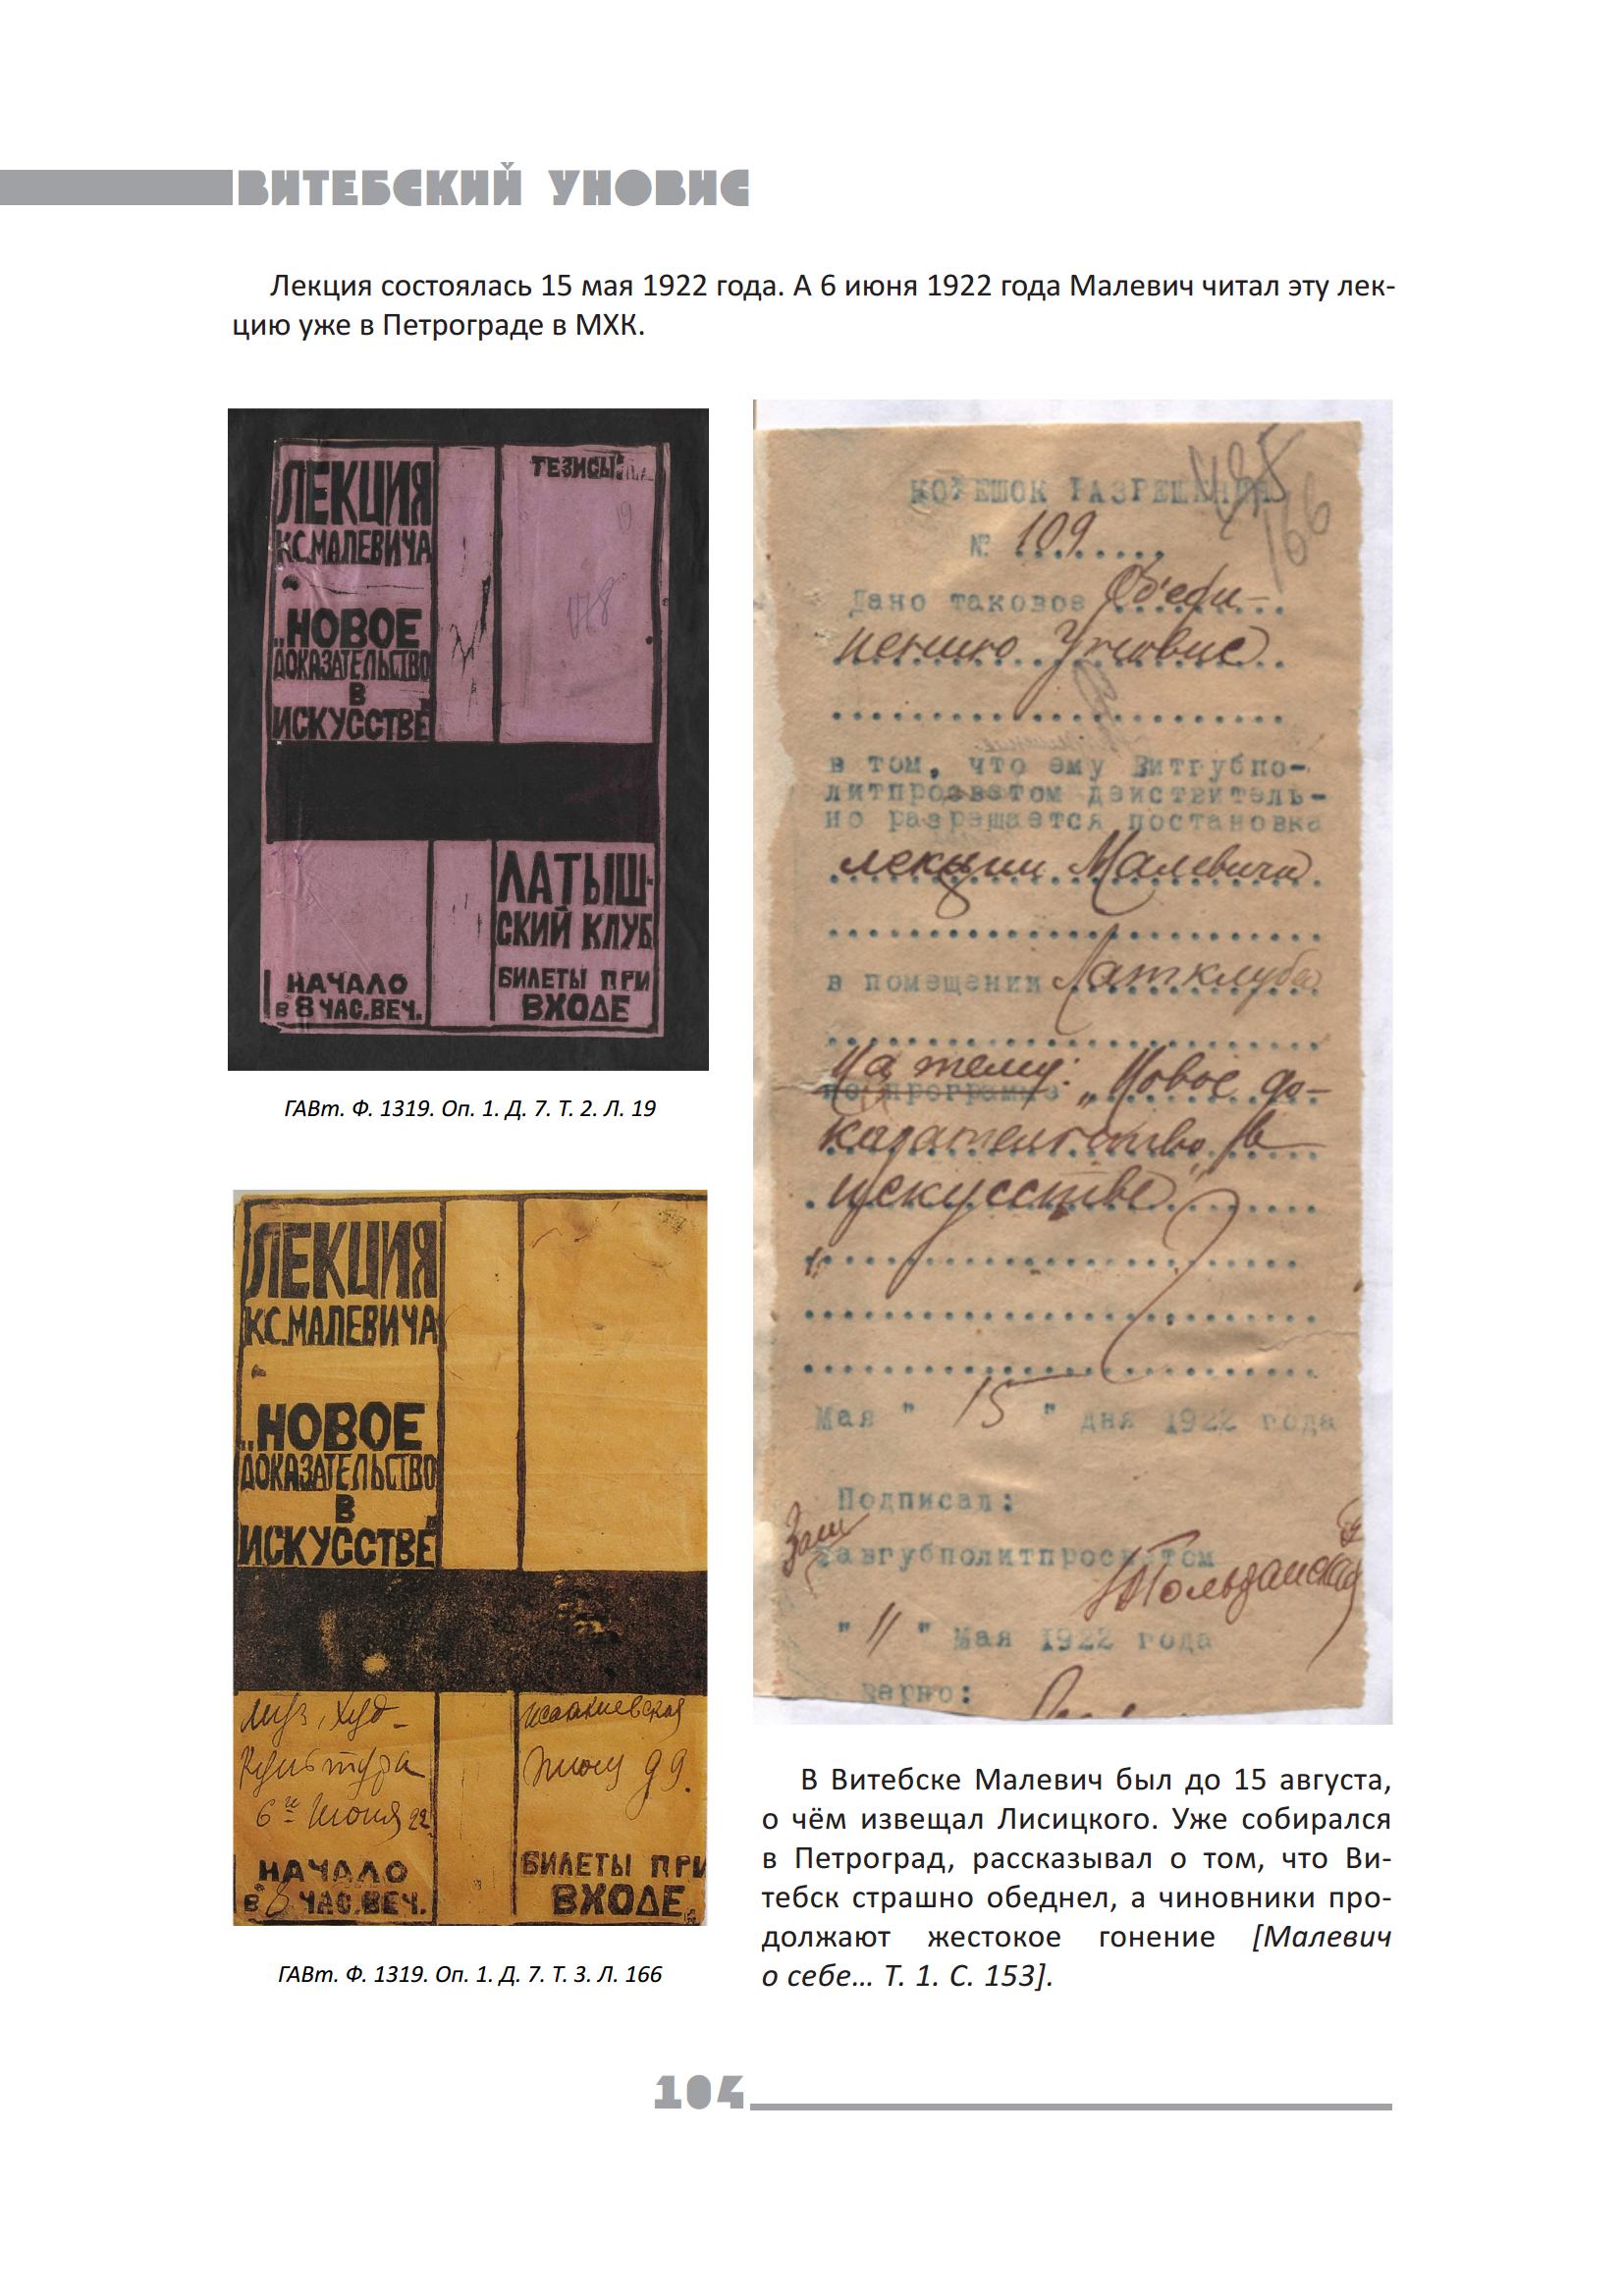 ВИТЕБСКИЙ УНОВИС
Лекция состоялась 15 мая 1922 года. А 6 июня 1922 года Малевич читал эту лек-
цию уже в Петрограде в МХК.
ЛЕКЦИЯ
КС.МАЛЕВИЧА
„НОВОЕ
ДОКАЗАТЕЛЬСТВО
В
ИСКУССТВЕ"
ТЕЗИСЫ:
19
ЛАТЫШ-
СКИЙ КЛУБ
НАЧАЛО
в 8 ЧАС.ВЕЧ.
БИЛЕТЫ ПРИ
ВХОДЕ
ГАВт. Ф. 1319. Оп. 1. Д. 7. Т. 2. Л. 19
ЛЕКЦИЯ
КС.МАЛЕВИЧА
„НОВОЕ
ДОКАЗАТЕЛЬСТВО
В
ИСКУССТВЕ"
Муз, Худ-
Культура
6го Июня 22
Исаакиевская
НАЧАЛО
в 8 ЧАС.ВЕЧ.
БИЛЕТЫ ПРИ
ВХОДЕ
ГАВт. Ф. 1319. Оп. 1. Д. 7. Т. 3. Л. 166
КОРЕШОК РАЗРЕШЕНИЯ
166
№ 109
Дано таковое Об'еди-
нению Уновис
в том, что ему Витгубпо-
литпросветом действитель-
но разрешается постановка
лекции Малевича
в помещении Латклуба
На тему: „Новое до-
по программе
казательство в
искусстве"
Мая " 15 " дня 1922 года
Подписал:
Зам
Завгубполитпросветом
" 11 " Мая 1922 года
Верно:
В Витебске Малевич был до 15 августа,
о чём извещал Лисицкого. Уже собирался
в Петроград, рассказывал о том, что Ви-
тебск страшно обеднел, а чиновники про-
должают жестокое гонение [Малевич
о себе... Т. 1. С. 153].
104